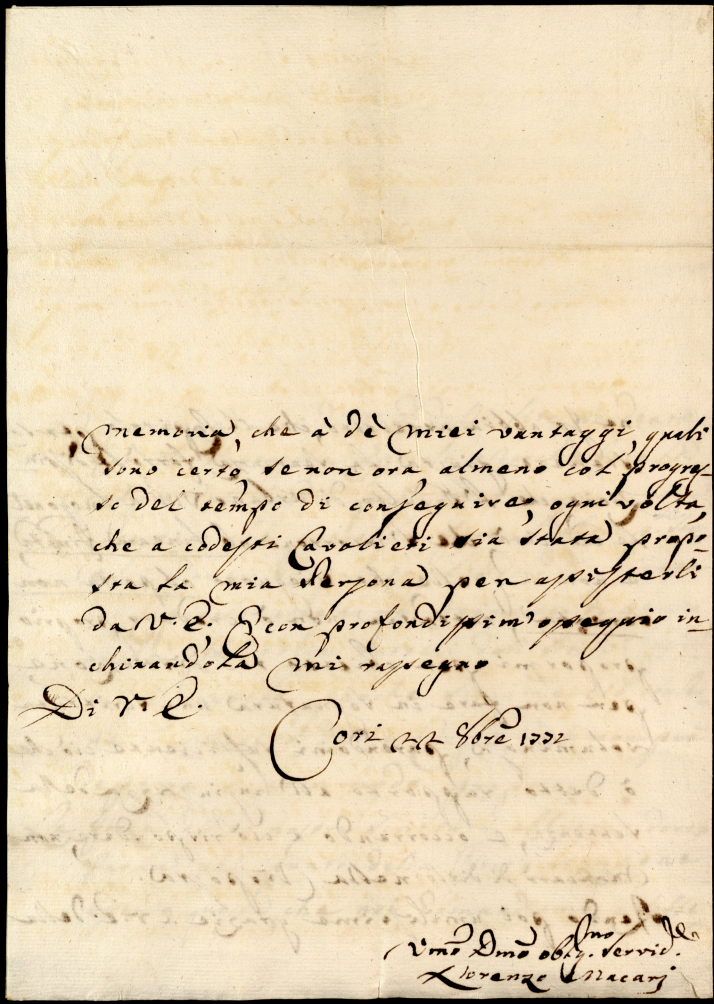 memoria, che à dè miei vantaggi, quali
sono certo, se non ora, almeno col progres-
so del tempo di conseguire, ogni volta,
che a codesti Cavalieri sia stata propo-
sta la mia Persona per assisterli
da V. E., E con profondissim' ossequio in-
chinandola mi rassegno
Di V. E.
Cori 22 8bre 1732
Vmo Dmo oblig.mo servid.re
Lorenzo Macarj